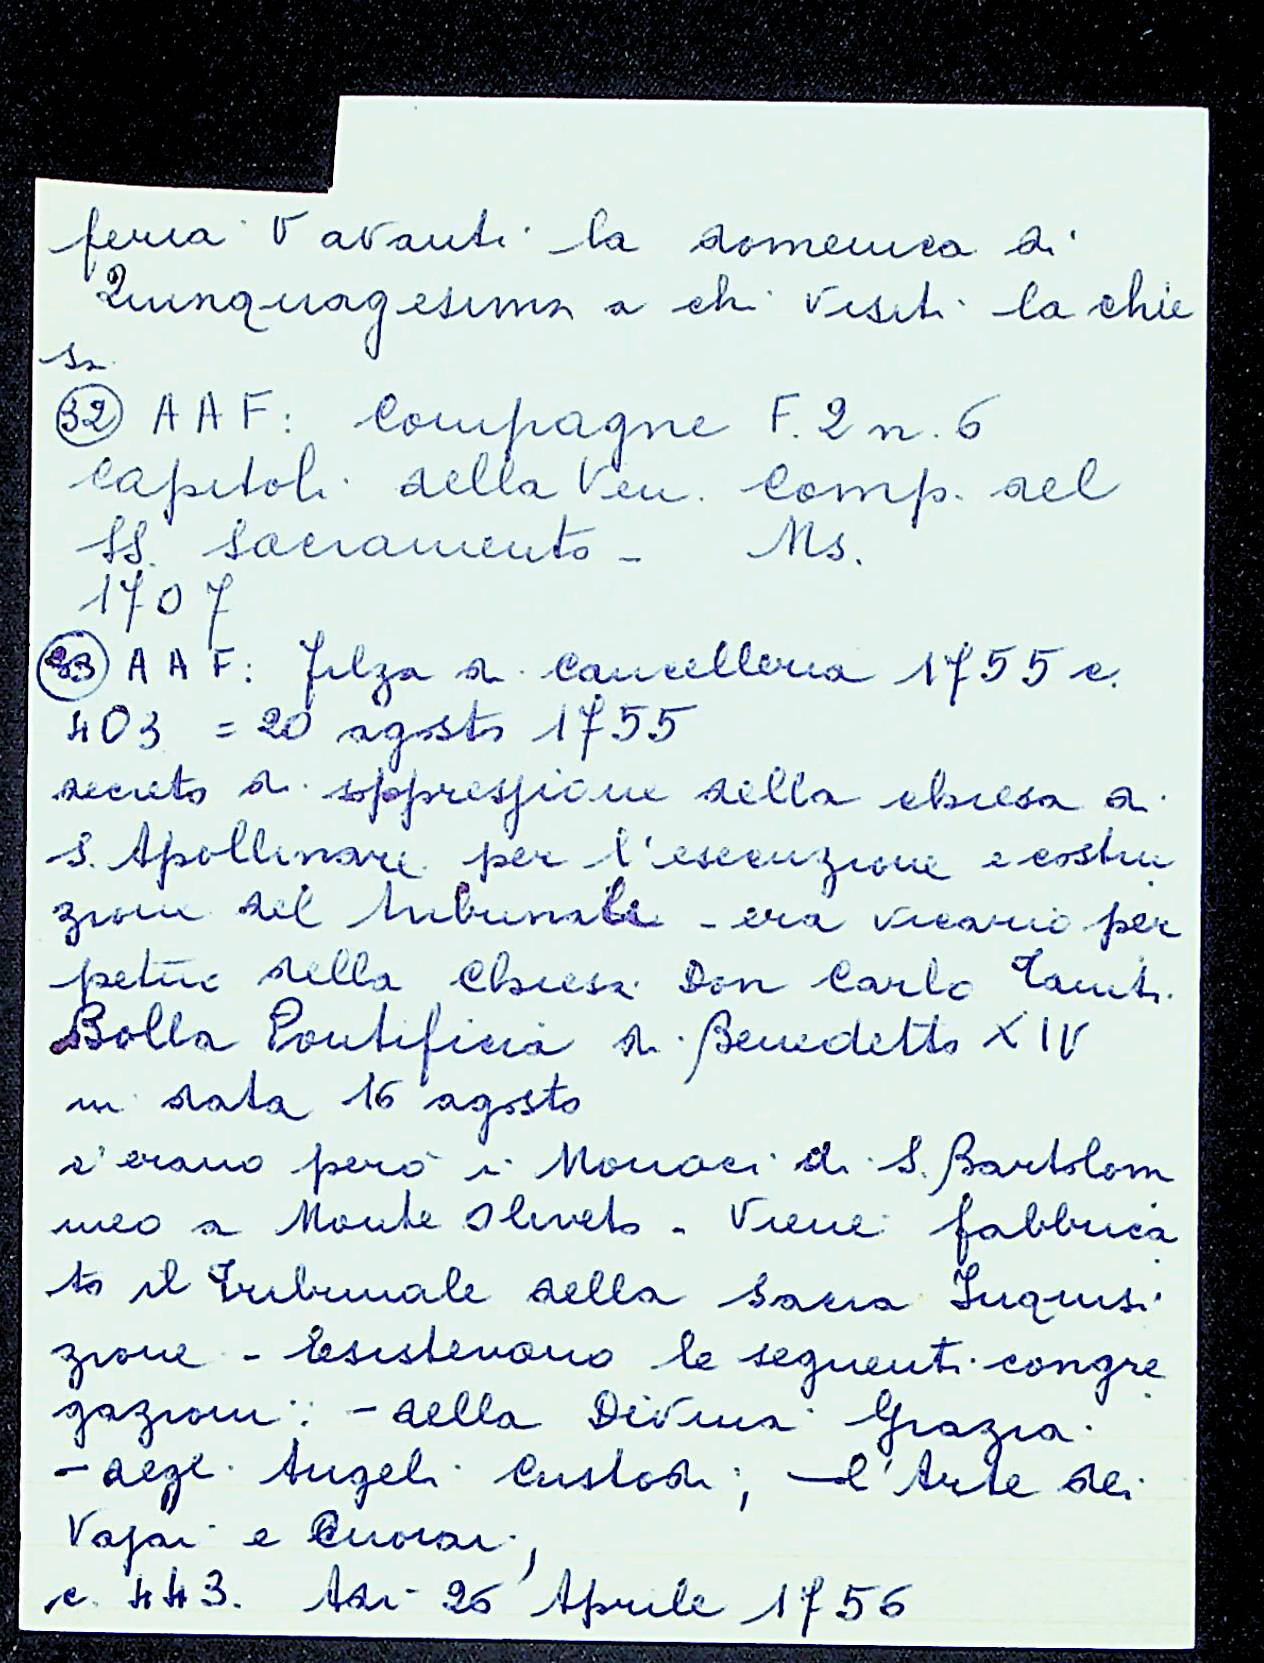 feria V avanti la domenica di
Quinquagesima a chi visiti la chie
sa
32 AAF: Compagnie F. 2 n. 6
Capitoli della Ven. Comp. del
SS. Sacramento - Ms.
1707
33 AAF: Filza di Cancelleria 1755 c.
403 = 20 agosto 1755
decreto di soppressione della chiesa di
S. Apollinare per l'esecuzione e costru
zione del tribunale - era vicario per
petuo della Chiesa Don Carlo
Bolla Pontificia di Benedetto XIV
in data 16 agosto
c'erano però i Monaci di S. Bartolom
meo a Monte Oliveto - Viene fabbrica
to il Tribunale della Sacra Inquisi
zione - Esistevano le seguenti congre
gazioni: - della Divina Grazia
- degli Angeli Custodi; - l'Arte dei
Vajai e Cuoiai,
c. 443. Adi 26 Aprile 1756